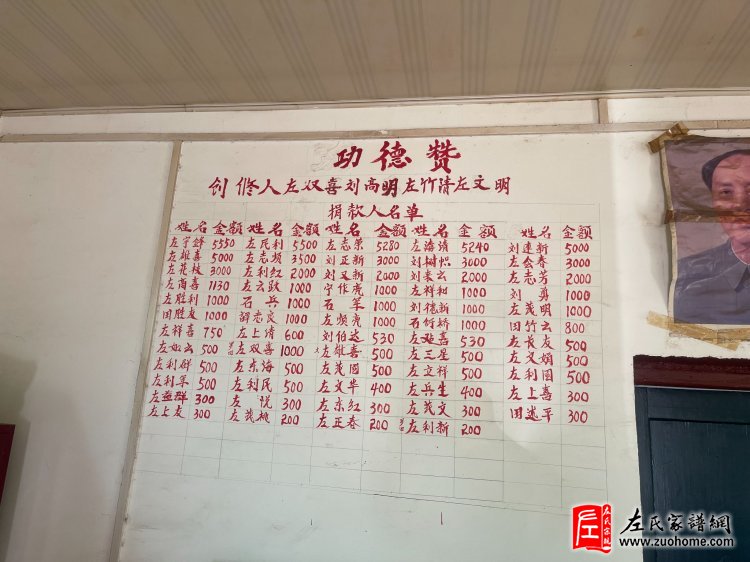 功德赞
创修人左双喜刘高明左竹清左文明
捐款人名单
姓名 金额 姓名 金额 姓名 金额 姓名 金额 姓名 金额
左宇锋 5550 左民利 5500 左志荣 5280 左海清 5240 刘建新 5000
左雄喜 5000 左志频 3500 刘正新 3000 刘树帜 3000 左会春 3000
左花枝 3000 左利红 2000 刘又新 2000 刘来云 2000 左志芳 2000
左商喜 1130 左云跃 1000 宁作虎 1000 左祥和 1000 刘勇 1000
左胜利 1000 石兵 1000 石军 1000 刘德新 1000 左茂明 1000
田胜友 1000 胡志良 1000 左频虎 1000 石竹娇 1000 田竹云 800
左祥喜 750 左上清 600 刘伯达 530 左迎喜 530 左长友 500
左如云 500 左双喜 1000 左雄喜 500 左三星 500 左文娟 500
左利群 500 左东海 500 左茂国 500 左立祥 500 左利国 500
左利军 500 左利民 500 左文华 400 左兵生 400 左上喜 300
左益群 300 左悦 300 左东红 300 左茂文 300 田建平 300
左上友 300 左茂城 200 左正春 200 左利新 200
左氏家譜網
www.zuohome.com